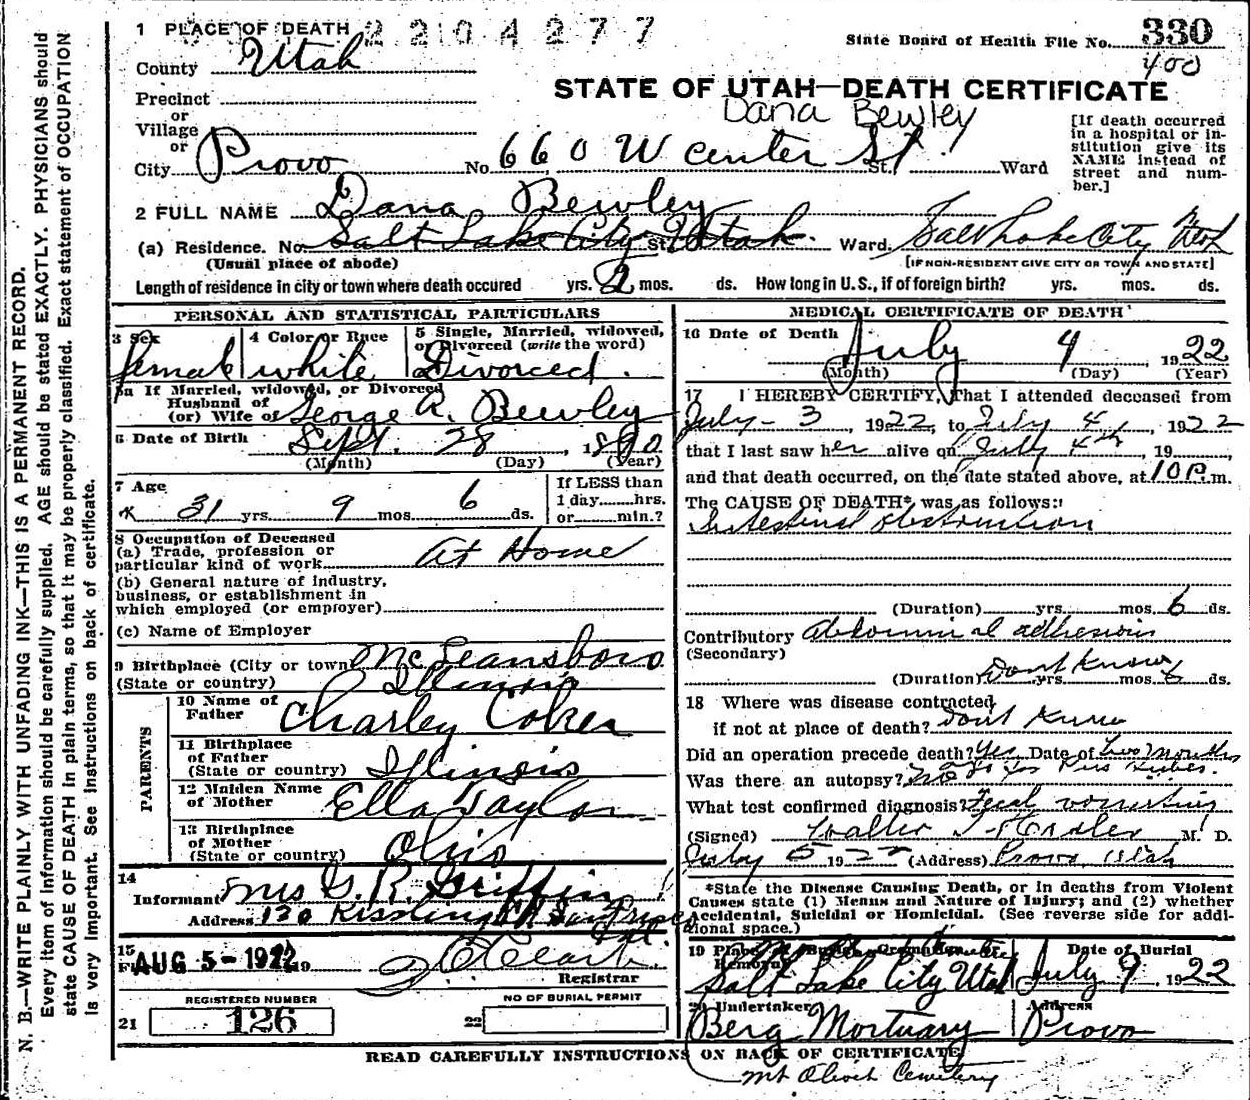 N. B.—WRITE PLAINLY WITH UNFADING INK—THIS IS A PERMANENT RECORD.
Every item of information should be carefully supplied. AGE should be stated EXACTLY. PHYSICIANS should
state CAUSE OF DEATH in plain terms, so that it may be properly classified. Exact statement of OCCUPATION
is very important. See instructions on back of certificate.
1 PLACE OF DEATH 2204277
State Board of Health File No. 330
400
County Utah
STATE OF UTAH—DEATH CERTIFICATE
Dana Bewley
Precinct
or
Village
or
City Provo No 660 W center St. St. Ward
[If death occurred
in a hospital or in-
stitution give its
NAME instead of
street and num-
ber.]
2 FULL NAME Dana Bewley
(a) Residence. No. Salt Lake City St. Utah Ward. Salt Lake City Utah
(Usual place of abode) [IF NON-RESIDENT GIVE CITY OR TOWN AND STATE]
Length of residence in city or town where death occured yrs. 2 mos. ds. How long in U.S., if of foreign birth? yrs. mos. ds.
PERSONAL AND STATISTICAL PARTICULARS
3 Sex female
4 Color or Race white
5 Single, Married, widowed,
or Divorced (write the word)
Divorced.
5a If Married, widowed, or Divorced
Husband of
(or) Wife of George A. Bewley
6 Date of Birth Sept. 28 1890
(Month) (Day) (Year)
7 Age
31 yrs. 9 mos 6 ds.
If LESS than
1 day hrs.
or min.?
8 Occupation of Deceased
(a) Trade, profession or
particular kind of work At Home
(b) General nature of Industry,
business, or establishment in
which employed (or employer)
(c) Name of Employer
9 Birthplace (City or town) McLeansboro
(State or country) Illinois
PARENTS
10 Name of
Father Charley Coker
11 Birthplace
of Father
(State or country) Illinois
12 Maiden Name
of Mother Ella Taylor
13 Birthplace
of Mother
(State or country) Ohio
14
Informant Mrs G. R. Griffin
Address 130 Kissling St San
Cal.
15
AUG 5-1922 19
Registrar
REGISTERED NUMBER
21 126
NO OF BURIAL PERMIT
22
MEDICAL CERTIFICATE OF DEATH
16 Date of Death
July 4 1922
(Month) (Day) (Year)
17 I HEREBY CERTIFY, That I attended deceased from
July - 3, 1922, to July 4, 1922
that I last saw her alive on July 4th, 19
and that death occurred, on the date stated above, at 10 P. m.
The CAUSE OF DEATH* was as follows:
Intestinal obstruction
(Duration) yrs. mos. 6 ds.
Contributory Abdominal adhesions
(Secondary)
Dont Know
(Duration) yrs. mos. ds.
18 Where was disease contracted
if not at place of death? Dont Know
Did an operation precede death? Yes Date of Two months
Was there an autopsy?
What test confirmed diagnosis? Fecal vomiting
(Signed) Walter T. M. D.
July 5 1922 (Address) Provo Utah
*State the Disease Causing Death, or in deaths from Violent
Causes state (1) Means and Nature of Injury; and (2) whether
Accidental, Suicidal or Homicidal. (See reverse side for addi-
tional space.)
19 Place of Burial, Cremation or
Removal
Salt Lake City Utah
Date of Burial
July 9, 1922
20 Undertaker
Berg Mortuary
Address
Provo
READ CAREFULLY INSTRUCTIONS ON BACK OF CERTIFICATE
Mt Olivet Cemetery